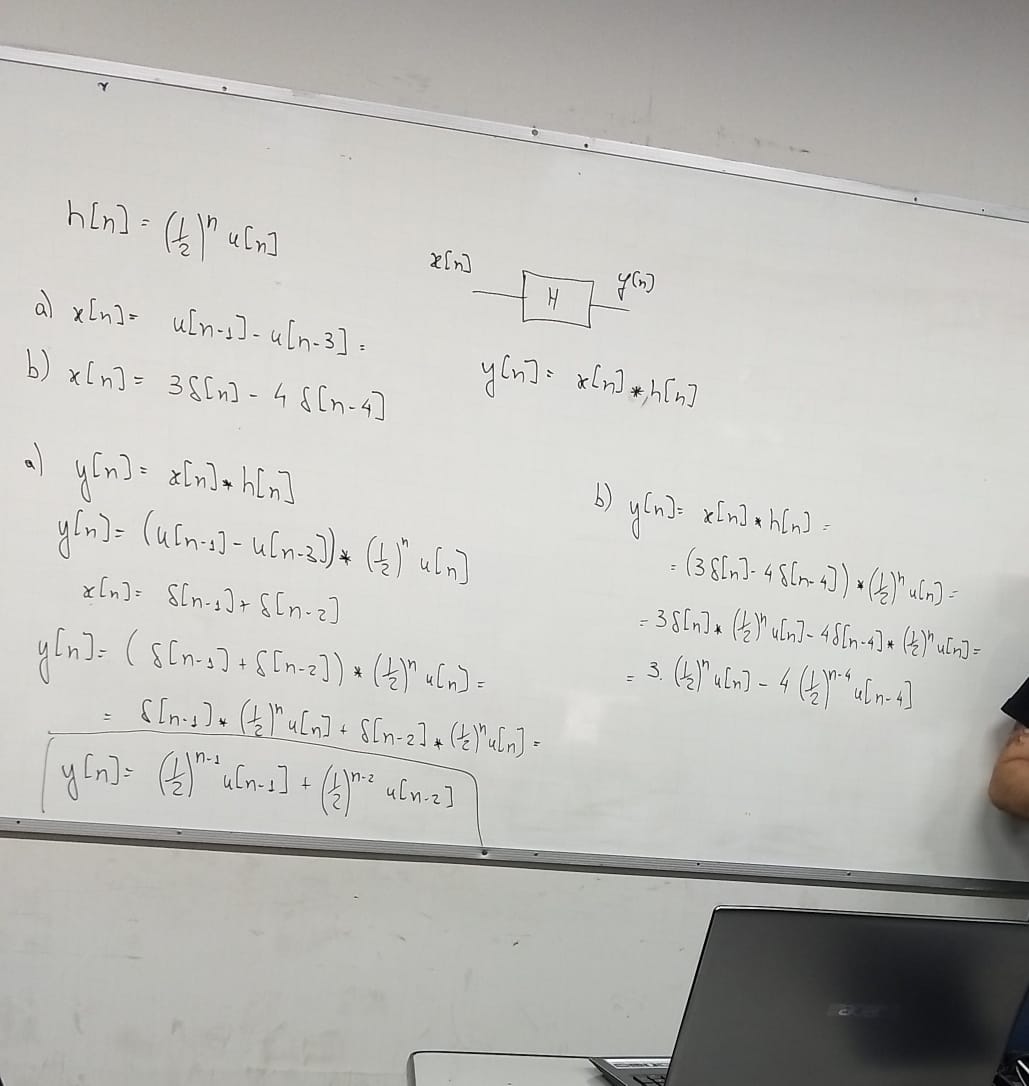 h[n] = (1/2)^n u[n]
x[n]
H
y[n]
a) x[n] = u[n-1] - u[n-3] =
b) x[n] = 3δ[n] - 4 δ[n-4]
y[n] = x[n] * h[n]
a) y[n] = x[n] * h[n]
y[n] = (u[n-1] - u[n-3]) * (1/2)^n u[n]
x[n] = δ[n-1] + δ[n-2]
y[n] = ( δ[n-1] + δ[n-2]) * (1/2)^n u[n] =
= δ[n-1] * (1/2)^n u[n] + δ[n-2] * (1/2)^n u[n] =
y[n] = (1/2)^{n-1} u[n-1] + (1/2)^{n-2} u[n-2]
b) y[n] = x[n] * h[n] =
= (3δ[n] - 4δ[n-4]) * (1/2)^n u[n] =
= 3δ[n] * (1/2)^n u[n] - 4δ[n-4] * (1/2)^n u[n] =
= 3. (1/2)^n u[n] - 4 (1/2)^{n-4} u[n-4]
acer